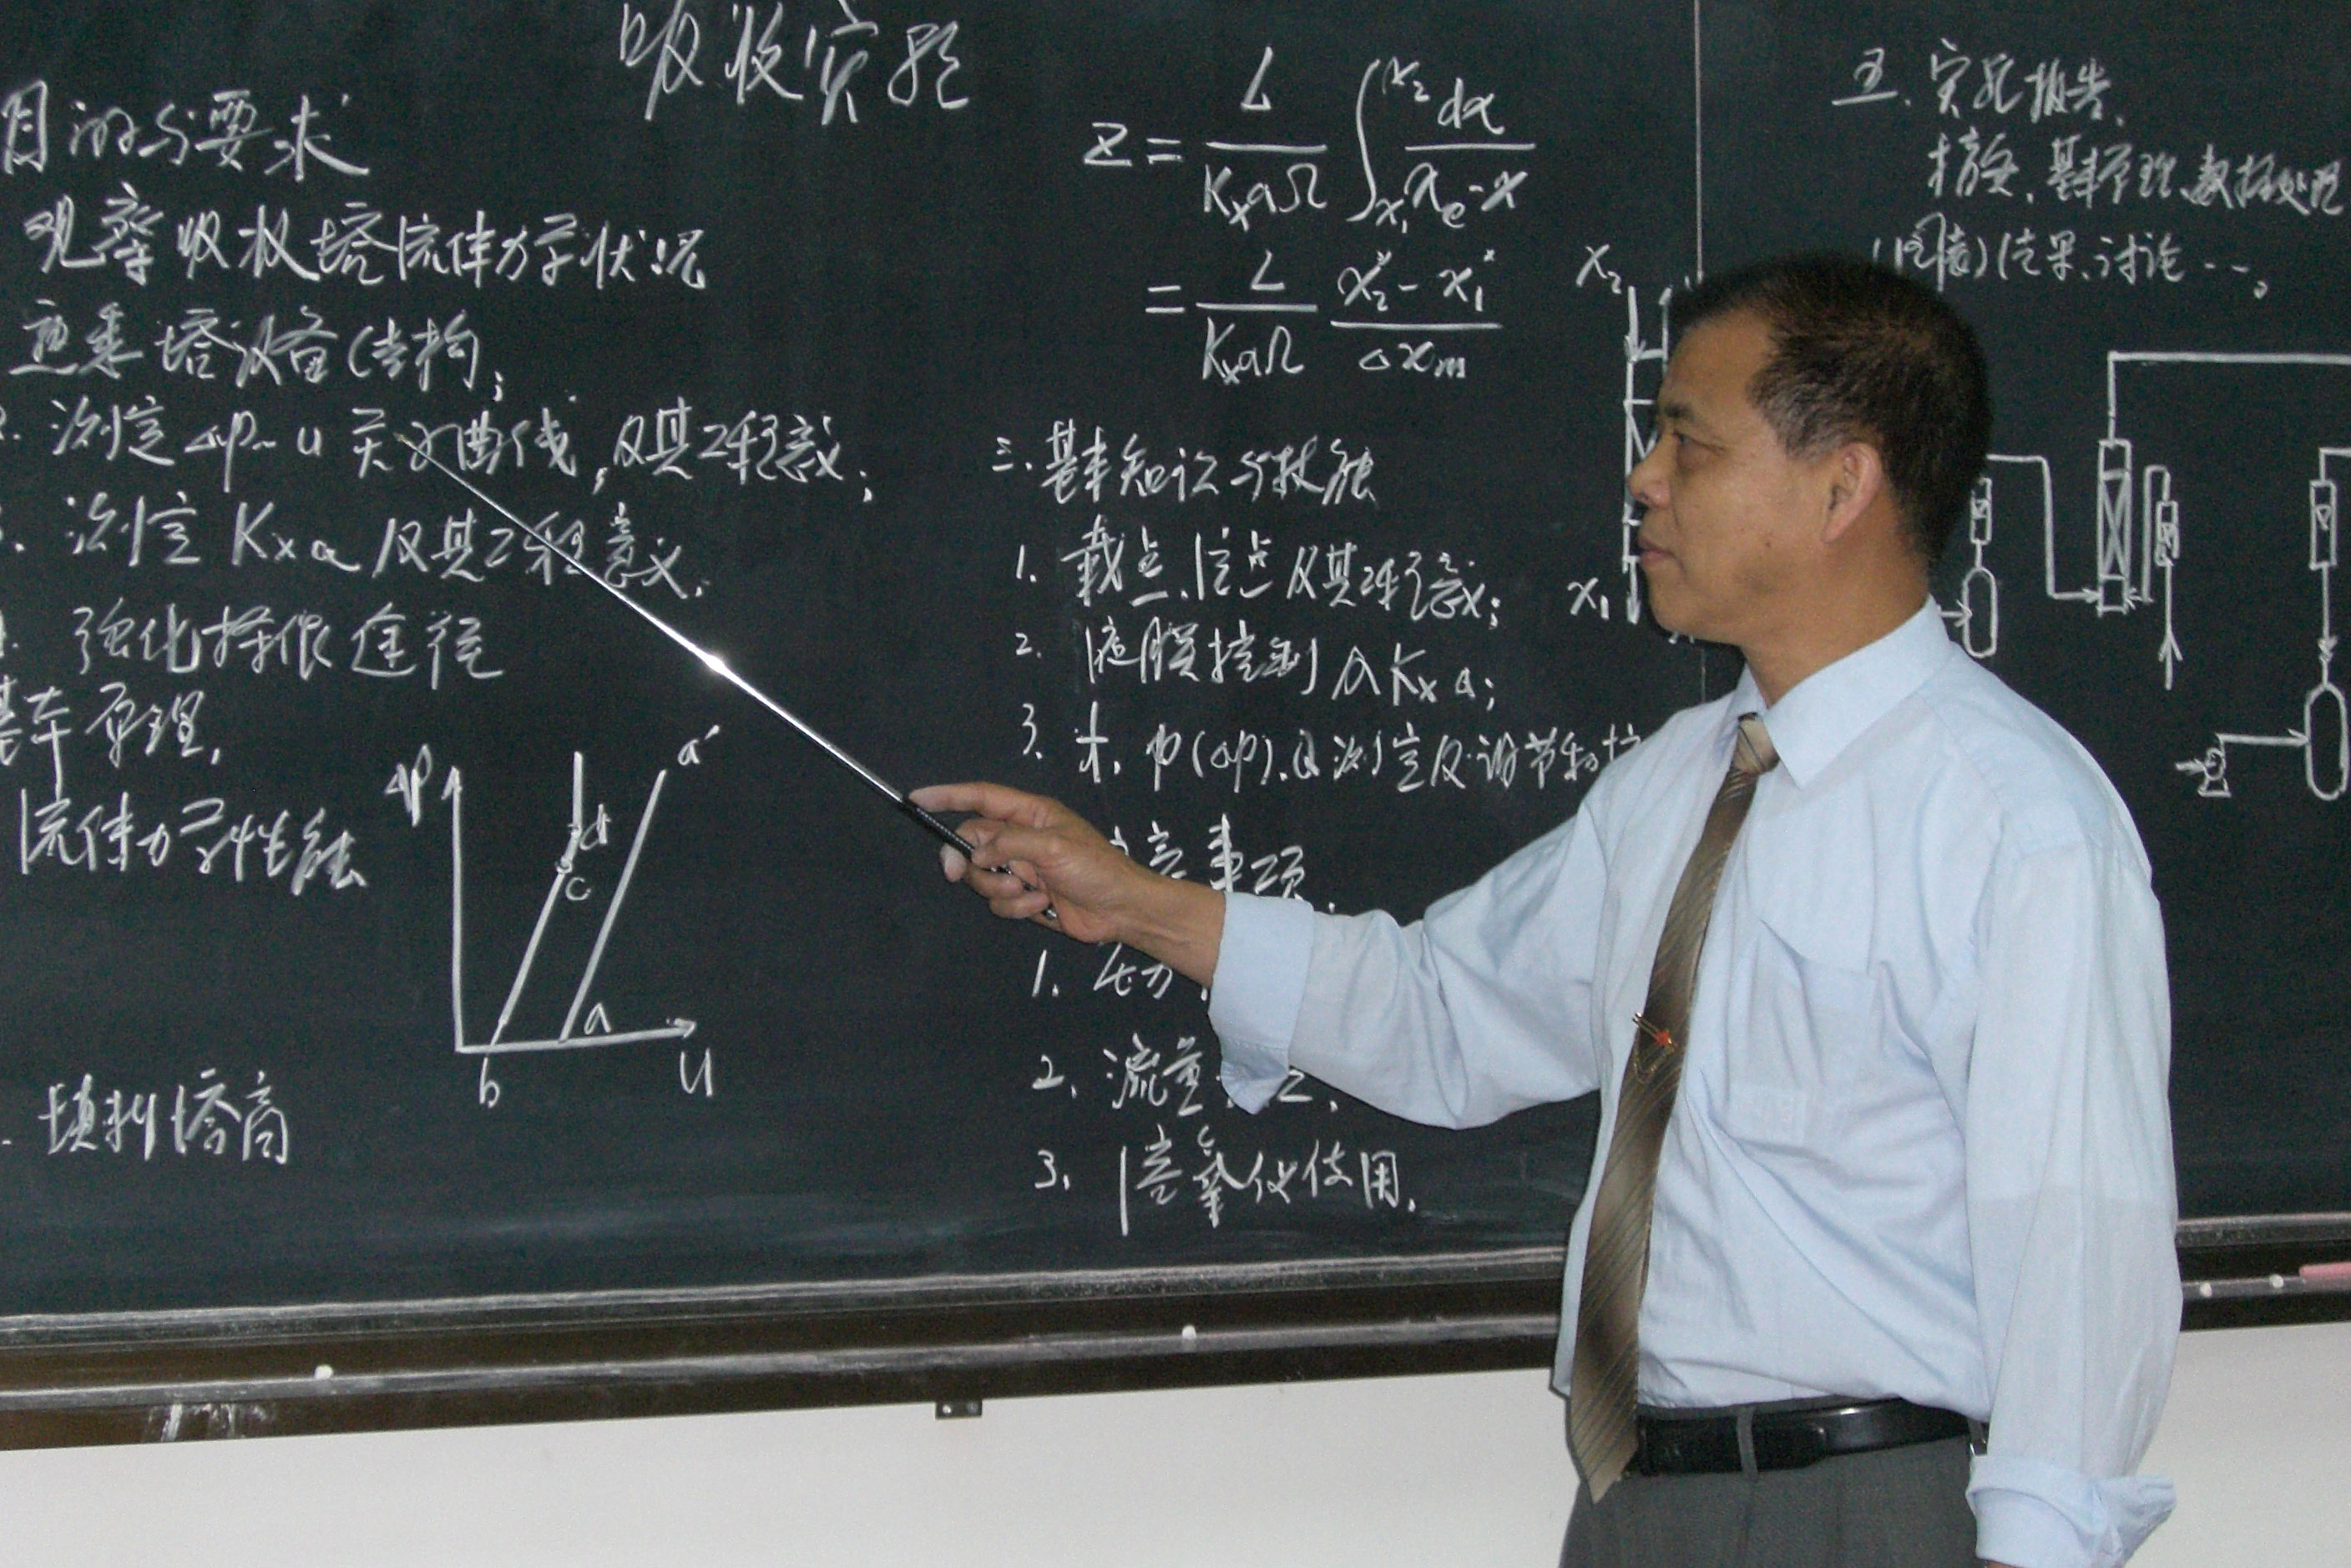 吸收实验
目的与要求
观察吸收塔流体力学状况
塔设备结构;
测定 Δp~u 关系曲线,及其工程意义;
测定 Kxa 及其工程意义.
强化操作途径
基本原理.
流体力学性能
Δp
a'
d
c
a
b
u
填料塔高
Z = L/(KxaΩ) ∫_{x1}^{x2} dx/(xe-x)
= L/(KxaΩ) (x2-x1)/Δxm
三. 基本知识与技能
1. 载点、泛点及其工程意义;
2. 液膜控制 Kxa;
3. t. p(Δp). Q 测定及调节和控
意事项
1.
2. 流量
3. 氧仪使用.
x2
x1
五. 实验报告.
摘要. 基本原理. 数据处理
(图表)结果. 讨论……。